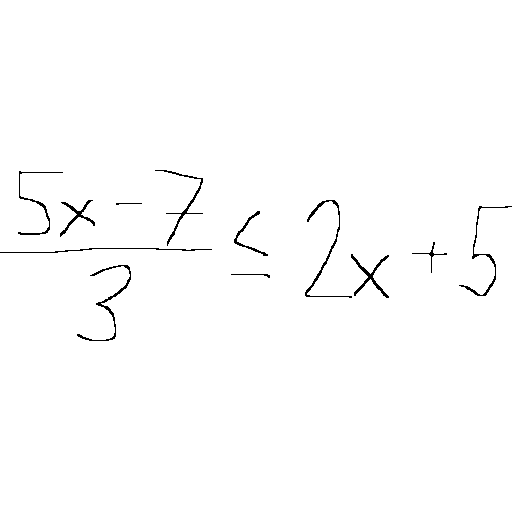 \frac{5x-7}{3} \leq 2x+5